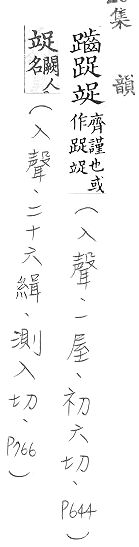 集韻
齪踀䇍 齊謹也或
作踀䇍
(入聲、一屋、初六切、P644)
䇍 闕人
名
(入聲、二十六緝、測入切、P766)